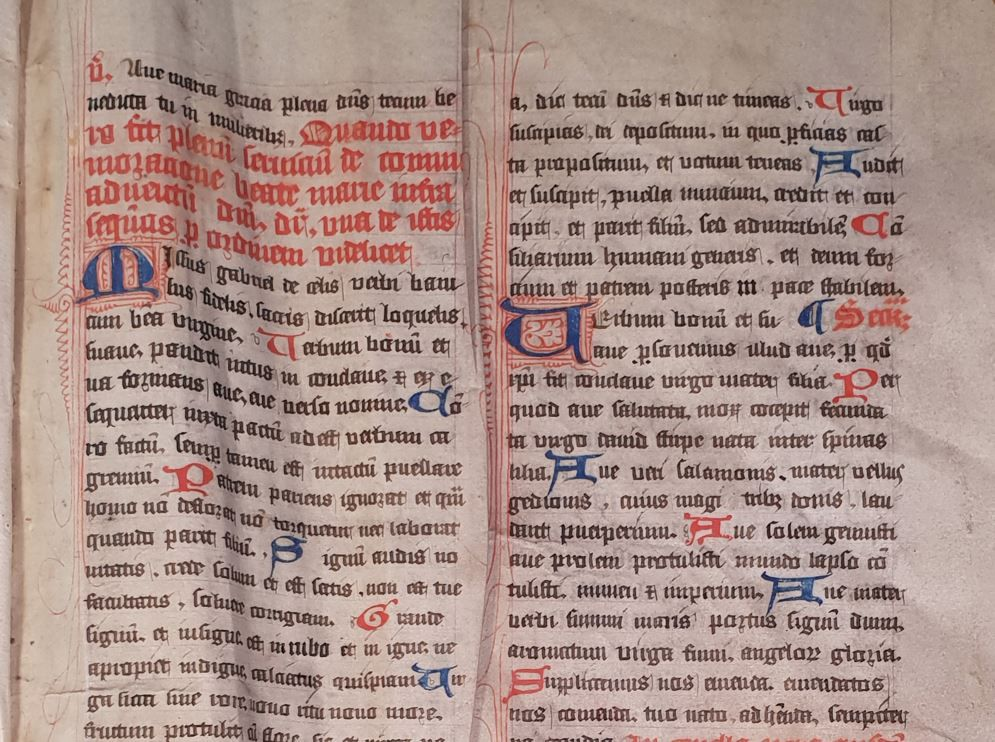 v̄. Aue maria gratia plena dn̄s tecum be
nedicta tu in mulieribꝫ. Quando ve-
ro fit plenū seruiciū de
beate marie infra
aduentū dn̄i, dr̄, vna de istis
sequēcijs ꝑ ordinem videlicet.
Missus gabriel de celis verbi baiu
lus fidelis, sacris disserit loquelis,
cum bēa virgine, Verbum bonū et
suaue, pandit intus in conclaue, ⁊ ex e
ua formans aue, aue verso nomine, Cō
sequenter iuxta pactū adest verbum ca
ro factū, semꝑ tamen est intactū puellare
gremiū. Patrem pariens ignorat et quē
homo nō deflorat nō torquetur nec laborat
quando parit filiū. Signū audis no
uitatis, crede solum et est satis, non est tue
facultatis, soluere corrigiam. Grande
signū, et insigne est in rubo et in igne, ne
apropiet indigne calciatus quispiam Vir
ga sicca sine rore, nouo ritu nouo more,
fructum protulit cū flore, sic et
a, dic tecū dn̄s ⁊ dic ne timeas. Virgo
suscipias, dei depositum, in quo ꝑficias cas
ta propositum, et votum teneas Audit
et suscipit, puella nuncium, credit et con
cipit, et parit filiū, sed admirabilē Cō
siliarium humani generis, et deum for
cium et patrem posteris in pace stabilem,
Verbum bonū et su ¶ Secūᷓ
aue ꝑsonemus illud aue, ꝑ qd̄
xpi fit conclaue virgo mater filia. Per
quod aue salutata, mox concepit fecunda
ta virgo dauid stirpe nata inter spinas
lilia, Aue veri salamonis, mater vellus
gedionis, cuius magi tribꝫ donis, lau
dant puerperium. Aue solem genuisti
aue prolem protulisti mundo lapso cō
tulisti, ⁊ imperium, Aue mater
verbi summi maris portus signū dumi,
aromatum virga fumi, angeloꝝ gloria.
Supplicamus nos emenda, emendatos
nos comenda, tuo nato, ad hn̄da, sempiter
na gaudia.